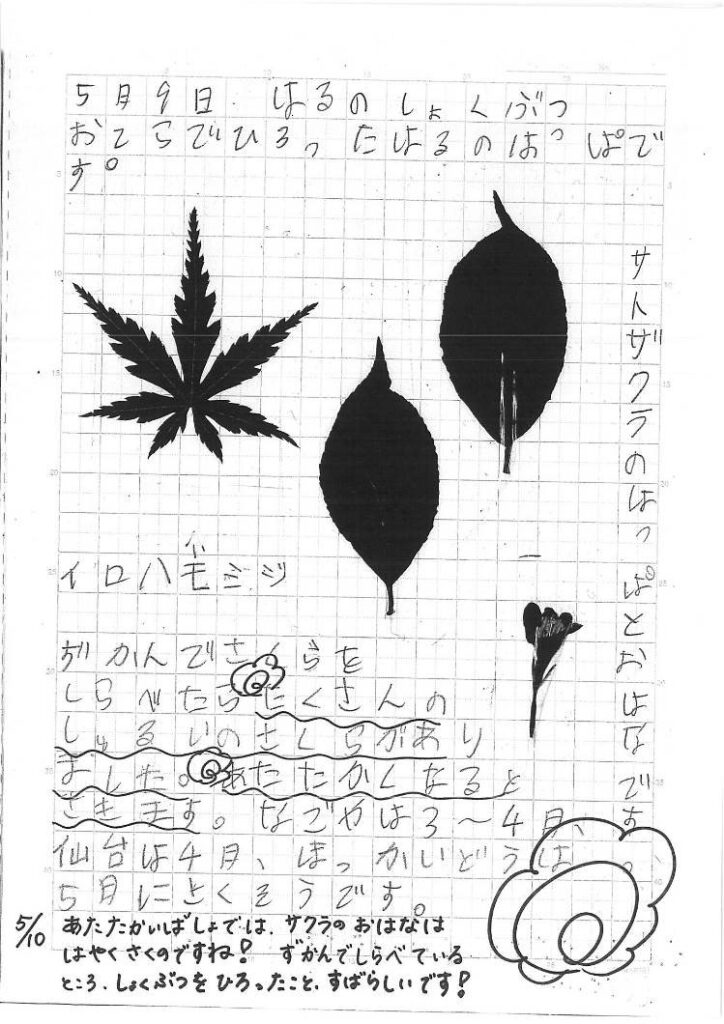 5月9日 はるのしょくぶつ
おてらでひろったはるのはっぱで
す。
サトザクラのはっぱとおはなです。
イロハモミジ
ずかんでさくらを
しらべたらたくさんの
しゅるいのさくらがあり
ました。あたたかくなると
さきます。なごやは3～4月、
仙台は4月、ほっかいどうは
5月にさくそうです。
5/10
あたたかいばしょでは、サクラのおはなは
はやくさくのですね！ ずかんでしらべている
ところ、しょくぶつをひろったこと、すばらしいです！